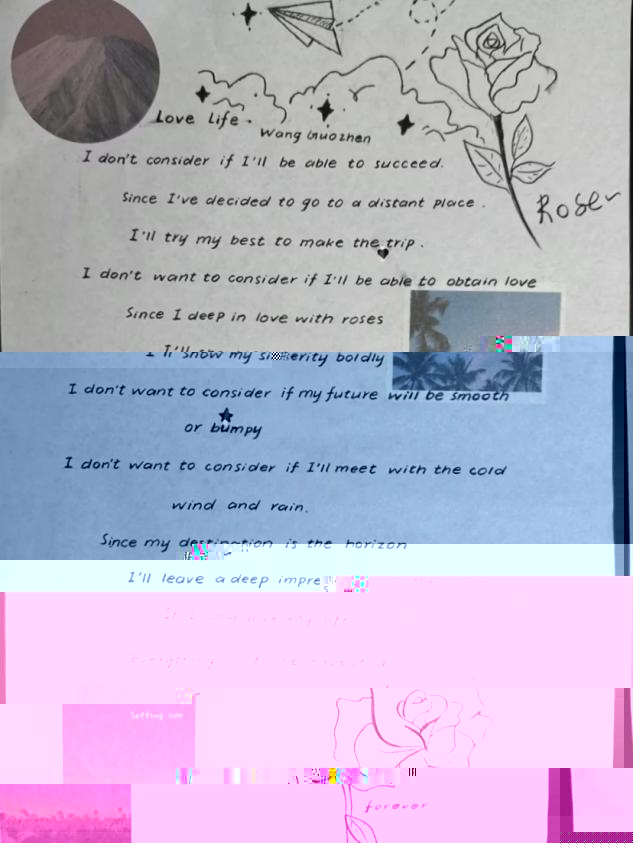 Love life.
Wang Guozhen
I don't consider if I'll be able to succeed.
Since I've decided to go to a distant place.
Roser
I'll try my best to make the trip.
I don't want to consider if I'll be able to obtain love
Since I deep in love with roses
my sincerity boldly
I don't want to consider if my future will be smooth
or bumpy
I don't want to consider if I'll meet with the cold
wind and rain.
Since my destination is the horizon
I'll leave a deep
my life
Everything
Setting sun
forever